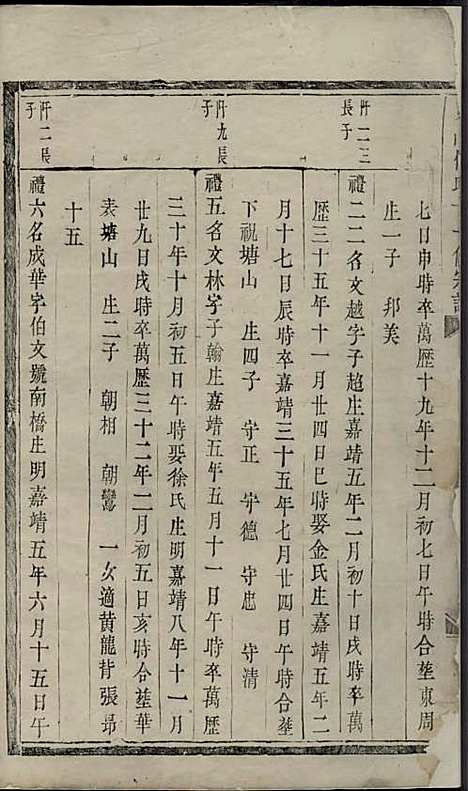 七日申時卒萬歷十九年十二月初七日午時合塟東周
生一子 邦美
阡一二三長子
禮二二名文越字子超庄嘉靖五年二月初十日戌時卒萬
歷三十五年十一月廿四日巳時娶金氏庄嘉靖五年二
月十七日辰時卒嘉靖三十五年七月廿四日午時合塟
下祝塘山 生四子 守正 守德 守忠 守清
阡九長子
禮五名文林字子翰庄嘉靖五年五月十一日午時卒萬歷
三十年十月初五日午時娶徐氏庄明嘉靖八年十一月
廿九日戌時卒萬歷三十二年二月初五日亥時合塟華
表塘山 生二子 朝相 朝鸞 一女適黄龍背張昻
十五
阡二長子
禮六名成華字伯文號南橋庄明嘉靖五年六月十五日午